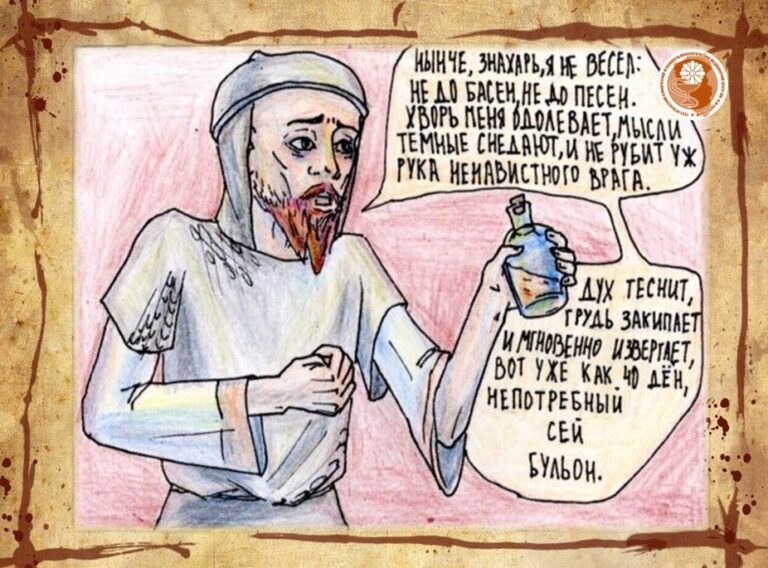 НЫНЧЕ, ЗНАХАРЬ, Я НЕ ВЕСЕЛ:
НЕ ДО БАСЕН, НЕ ДО ПЕСЕН.
ХВОРЬ МЕНЯ ОДОЛЕВАЕТ, МЫСЛИ
ТЕМНЫЕ СНЕДАЮТ, И НЕ РУБИТ УЖ
РУКА НЕНАВИСТНОГО ВРАГА.
ДУХ ТЕСНИТ,
ГРУДЬ ЗАКИПАЕТ
И МГНОВЕННО ИЗВЕРГАЕТ,
ВОТ УЖЕ КАК 40 ДЁН,
НЕПОТРЕБНЫЙ
СЕЙ
БУЛЬОН.